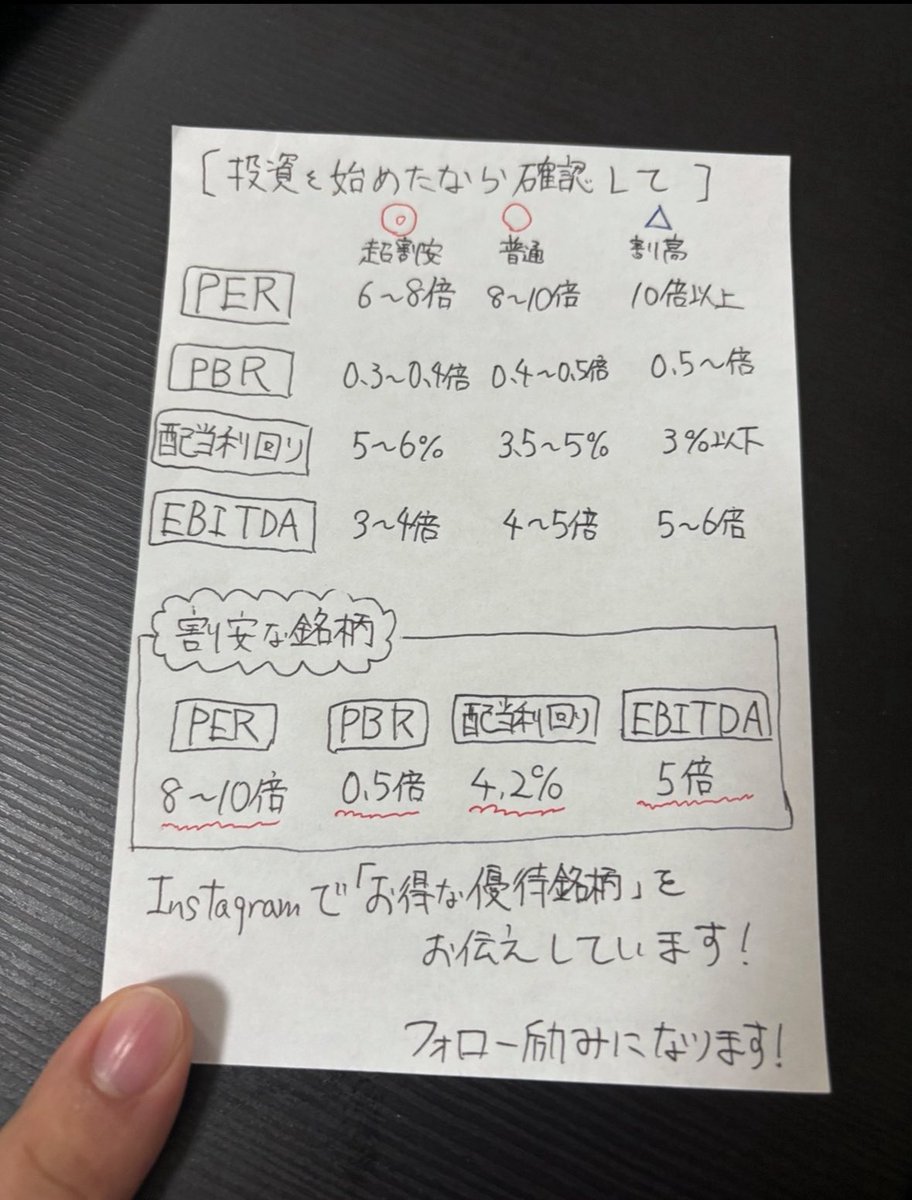 [投資を始めたなら確認して]
◎ ○ △
超割安 普通 割り高
PER 6～8倍 8～10倍 10倍以上
PBR 0.3～0.4倍 0.4～0.5倍 0.5～倍
配当利回り 5～6% 3.5～5% 3%以下
EBITDA 3～4倍 4～5倍 5～6倍
割り安な銘柄
PER PBR 配当利回り EBITDA
8～10倍 0.5倍 4.2% 5倍
Instagramで「お得な優待銘柄」を
お伝えしています!
フォロー励みになります!